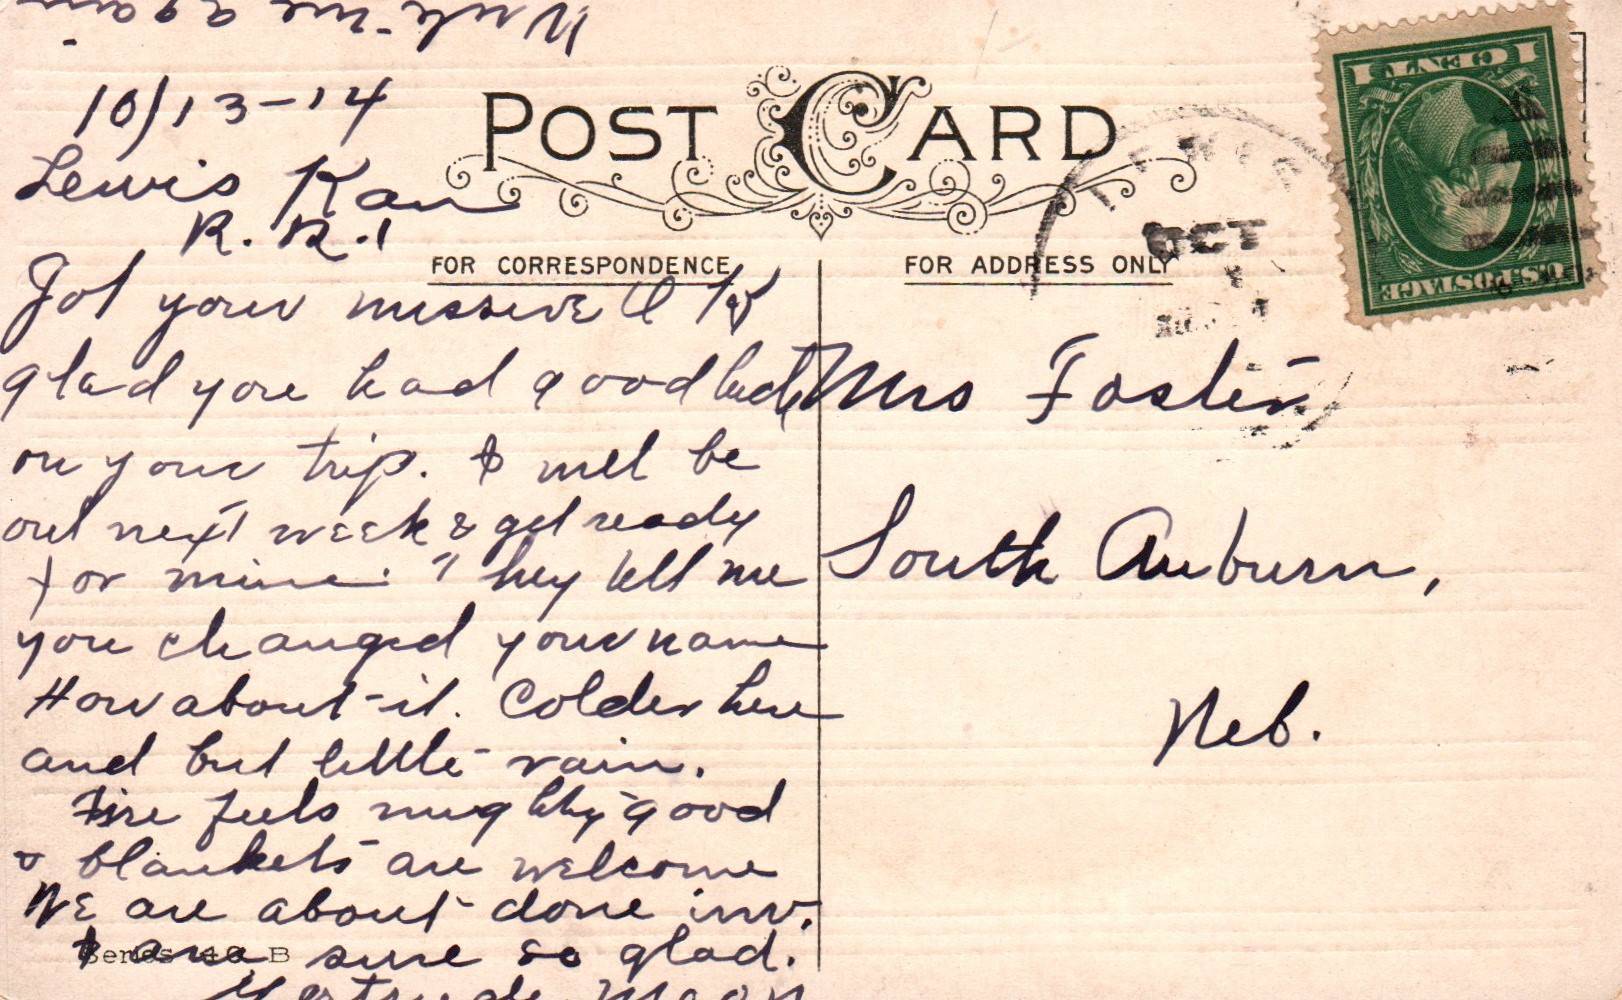 Write me again
10/13-14
Lewis Kan
R.R.1
Got your missive & 
glad you had good luck
on your trip. I will be
out next week & get ready
for mine. They tell me
you changed your name
How about it. Colder here
and but little rain.
Fire feels mighty good
& blankets are welcome
We are about done inv.
& am sure so glad.
Gertrude Moon
Series 40 B
POST CARD
FOR CORRESPONDENCE
FOR ADDRESS ONLY
OCT
U.S. POSTAGE
1 CENT 1
Mrs Foster
South Auburn,
Neb.